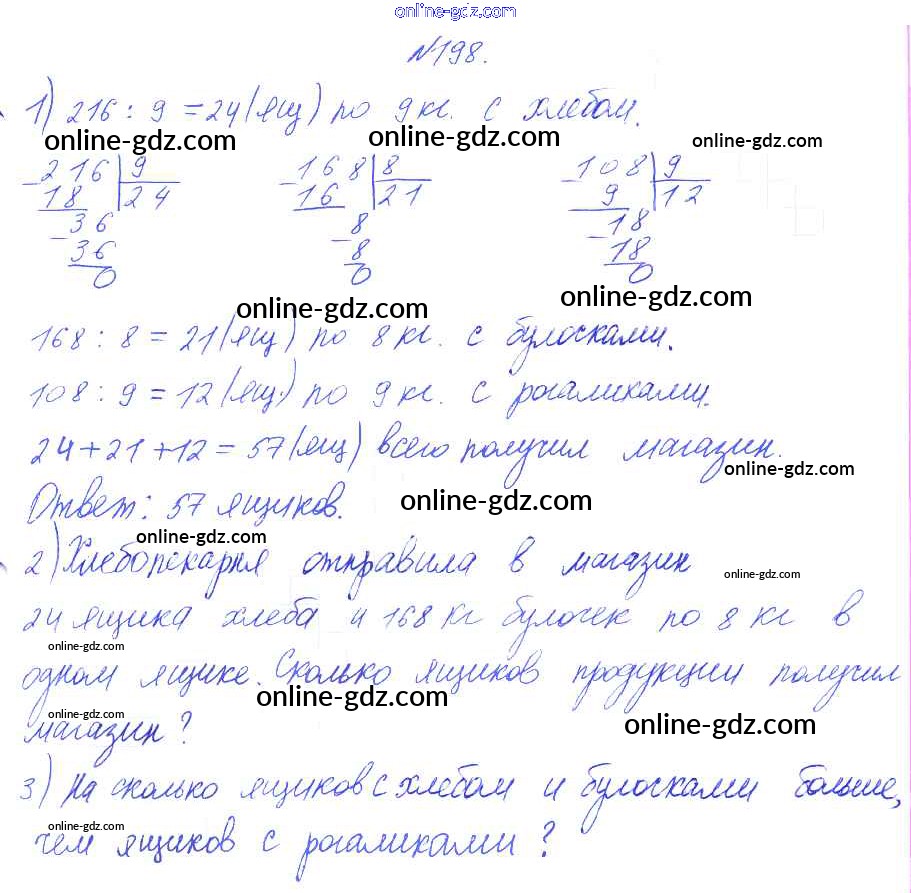 online-gdz.com
№198.
1) 216 : 9 = 24 (ящ) по 9 кг. с хлебом.
online-gdz.com online-gdz.com online-gdz.com
- 216 | 9 - 168 | 8 - 108 | 9
18 | 24 16 | 21 9 | 12
- 36 - 8 - 18
36 8 18
0 0 0
online-gdz.com online-gdz.com
168 : 8 = 21 (ящ) по 8 кг. с булосками.
108 : 9 = 12 (ящ.) по 9 кг. с рогаликами.
24 + 21 + 12 = 57 (ящ) всего получил магазин.
online-gdz.com
Ответ: 57 ящиков.
online-gdz.com
online-gdz.com
2) Хлебопекарня отправила в магазин
online-gdz.com
24 ящика хлеба и 168 кг булочек по 8 кг в
online-gdz.com
одном ящике. Сколько ящиков продукции получил
online-gdz.com
online-gdz.com online-gdz.com
магазин?
3) На сколько ящиков с хлебом и булосками больше,
online-gdz.com
чем ящиков с рогаликами?